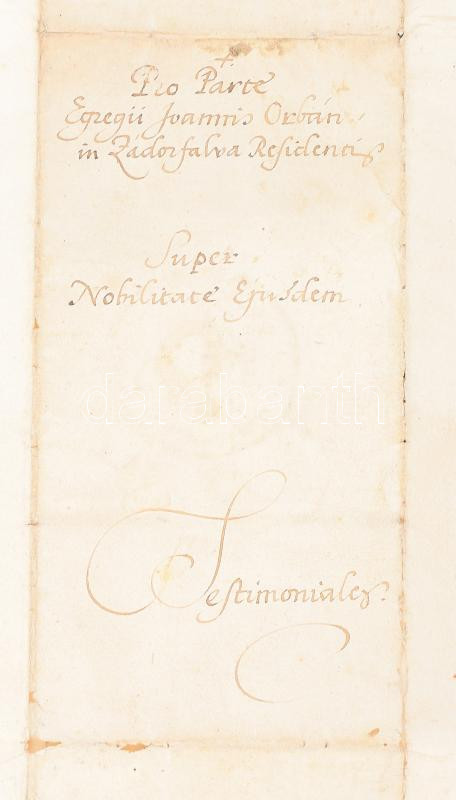 +
Pro Parte
Egregii Joannis Orbán
in Zádorfalva Residentis
Super
Nobilitate Ejusdem
darabanth
Testimoniales.